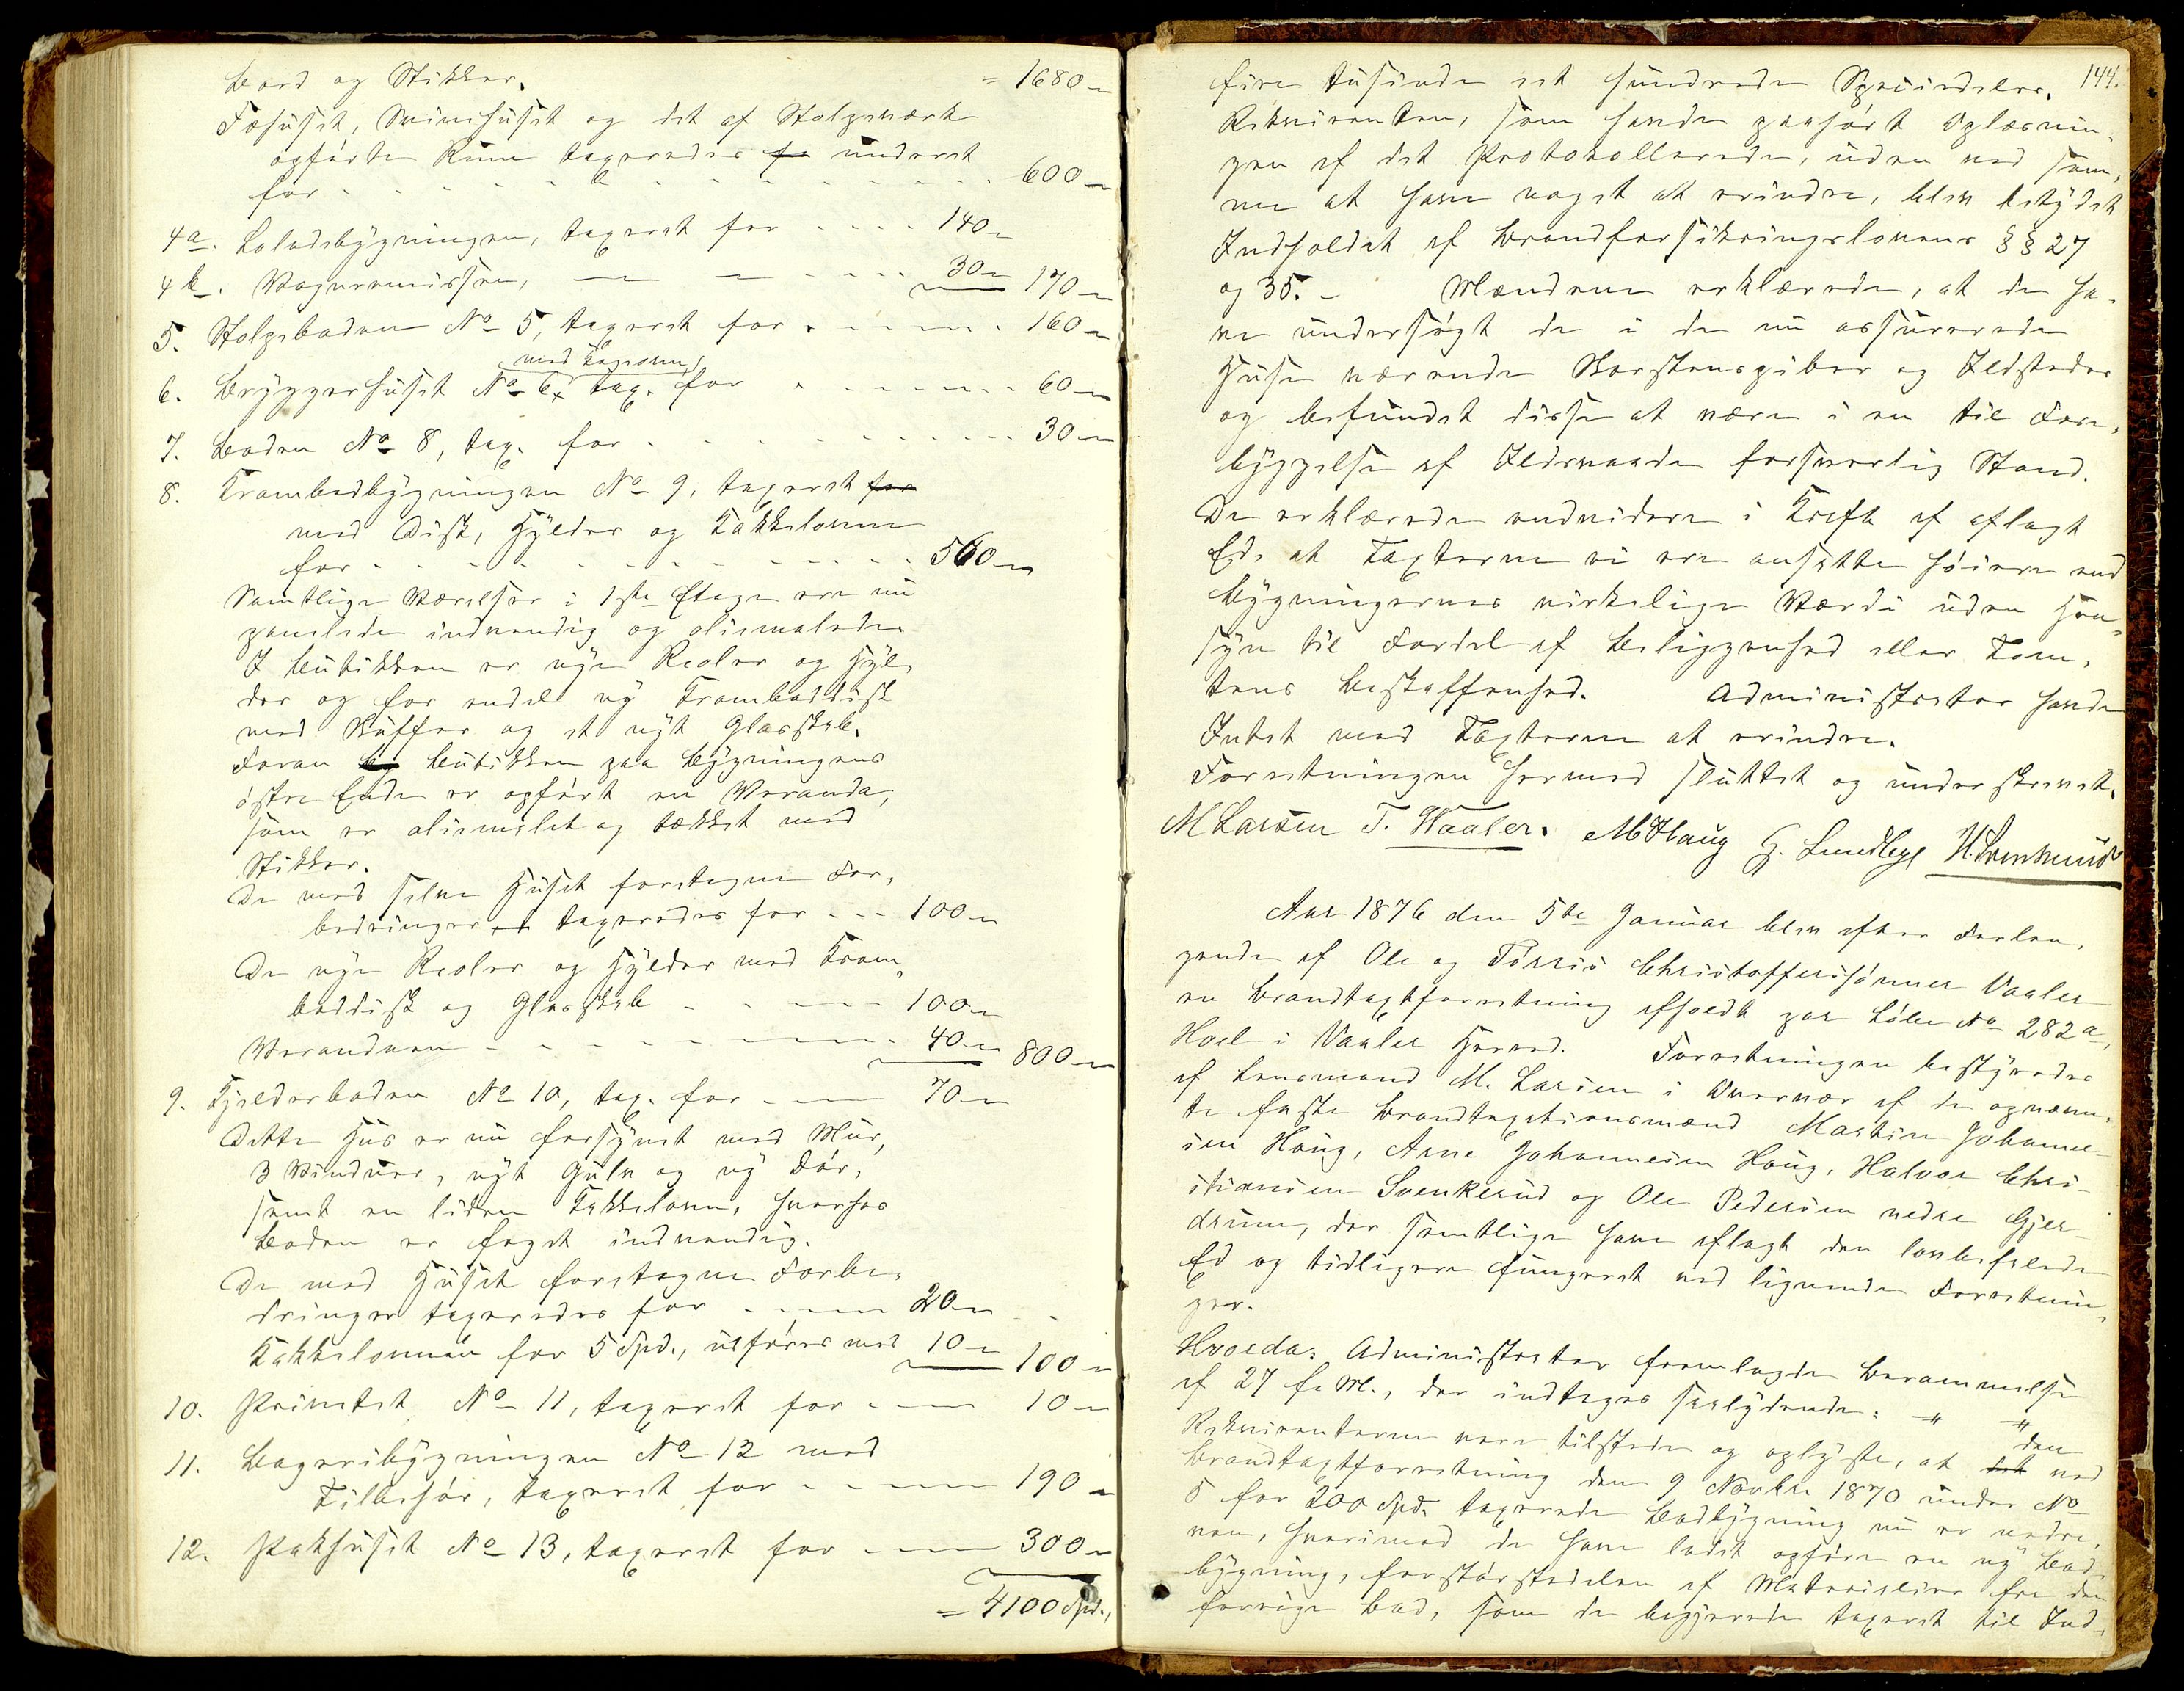 Bord og Stikker. = 1680 „
Fæhuset, Svinehuset og det af Stolpeværk
opførte Rum taxeredes fo underet
for - - - - - - - - - - 600 „
4a. Ladebygningen, taxeret for - - - - 140 „
4b. Vognremissen, — — - - - - 30 „ 170 „
5. Stolpeboden No 5, taxeret for - - - - 160 „
med Bagerovn
6. Bryggerhuset No 6, tax. for - - - - - - 60 „
7. Boden No 8, tax. for - - - - - - - - 30 „
8. Krambodbygningen No 9, taxeret for
med Disk, Hylder og Kakkelovne
for - - - - - - - - - - - 560 „
Samtlige Værelser i 1ste Etage ere nu
panelede indvendig og oliemalede.
I Butikken er nye Reoler og Hyl-
der og for endel ny Kramboddisk
med Skuffer og et nyt Glasskab.
Foran by Butikken paa Bygningens
østre Ende er opført en Veranda,
som er oliemalet og tækket med
Stikker.
De med selve Huset foretagne For-
bedringer et taxeredes for - - - 100 „
De nye Reoler og Hylder med Kram-
boddisk og Glasskab - - - - - 100 „
Verandaen - - - - - - - - 40 „ 800 „
9. Fjelderboden No 10, tax. for - - - 70 „
Dette Hus er nu forsynet med Mur,
3 Vinduer, nyt Gulv og ny Dør,
samt en liden Kakkelovn, hvorhos
Boden er foget indvendig.
De med Huset foretagne Forbe-
dringer taxeredes for - - - - 20 „
Kakkelovnen for 5 Spd., udføres med 10 „ 100 „
10. Privetet No 11, taxeret for - - - 10 „
11. Bageribygningen No 12 med
Tilbehør, taxeret for - - - - 190 „
12. Pakhuset No 13, taxeret for - - - 300 „
= 4100 Spd.,
144.
fire tusinde et hundrede Speciedaler.
Rekvirenten, som havde paahørt Oplæsnin-
gen af det Protokollerede, uden ved sam-
me at have noget at erindre, blev betydet
Indholdet af Brandforsikringslovens §§ 27
og 35. – Mændene erklærede, at de ha-
ve undersøgt de i de nu assurerede
Huse værende Skorstenspiber og Ildsteder
og befundet disse at være i en til Fore-
byggelse af Ildsvaade forsvarlig Stand.
De erklærede endvidere i Kraft af aflagt
Ed, at Taxterne ei ere ansatte høiere end
Bygningernes virkelige Værdi uden Hen-
syn til Fordel af Beliggenhed eller Tom-
tens Beskaffenhed. Administrator havde
Intet mod Taxterne at erindre.
Forretningen hermed sluttet og underskrevet.
M Larsen T. Waaler. M Haug G. Lundbye H. Svenkerud
Aar 1876 den 5te Januar blev efter Forlan-
gende af Ole og Tørris Christoffersønner Vaaler
en Brandtaxtforretning afholdt paa Løbe No 282a,
Hoel i Vaaler Herred. Forretningen bestyredes
af Lensmand M. Larsen i Overvær af de opnævn-
te faste Brandtaxationsmænd Martin Johanne-
sen Haug, Arne Johannesen Haug, Halvor Chri-
stiansen Svenkerud og Ole Pedersen nedre Gjer-
drum, der samtlige have aflagt den lovbefalede
Ed og tidligere fungeret ved lignende Forretnin-
ger.
Hvorda: Administrator fremlagde Berammelse
af 27 f. M., der indtages saalydende: „ „
Rekvirenterne vare tilstede og oplyste, at det den ved
Brandtaxtforretning den 9 Novbr 1870 under No
5 for 200 Spd. taxerede Bodbygning nu er nedre-
ven, hvorimod de have ladet opføre en ny Bod-
bygning, forstørstedelen af Materialier fra den
forrige Bod, som de begjærede taxeret til Ind-